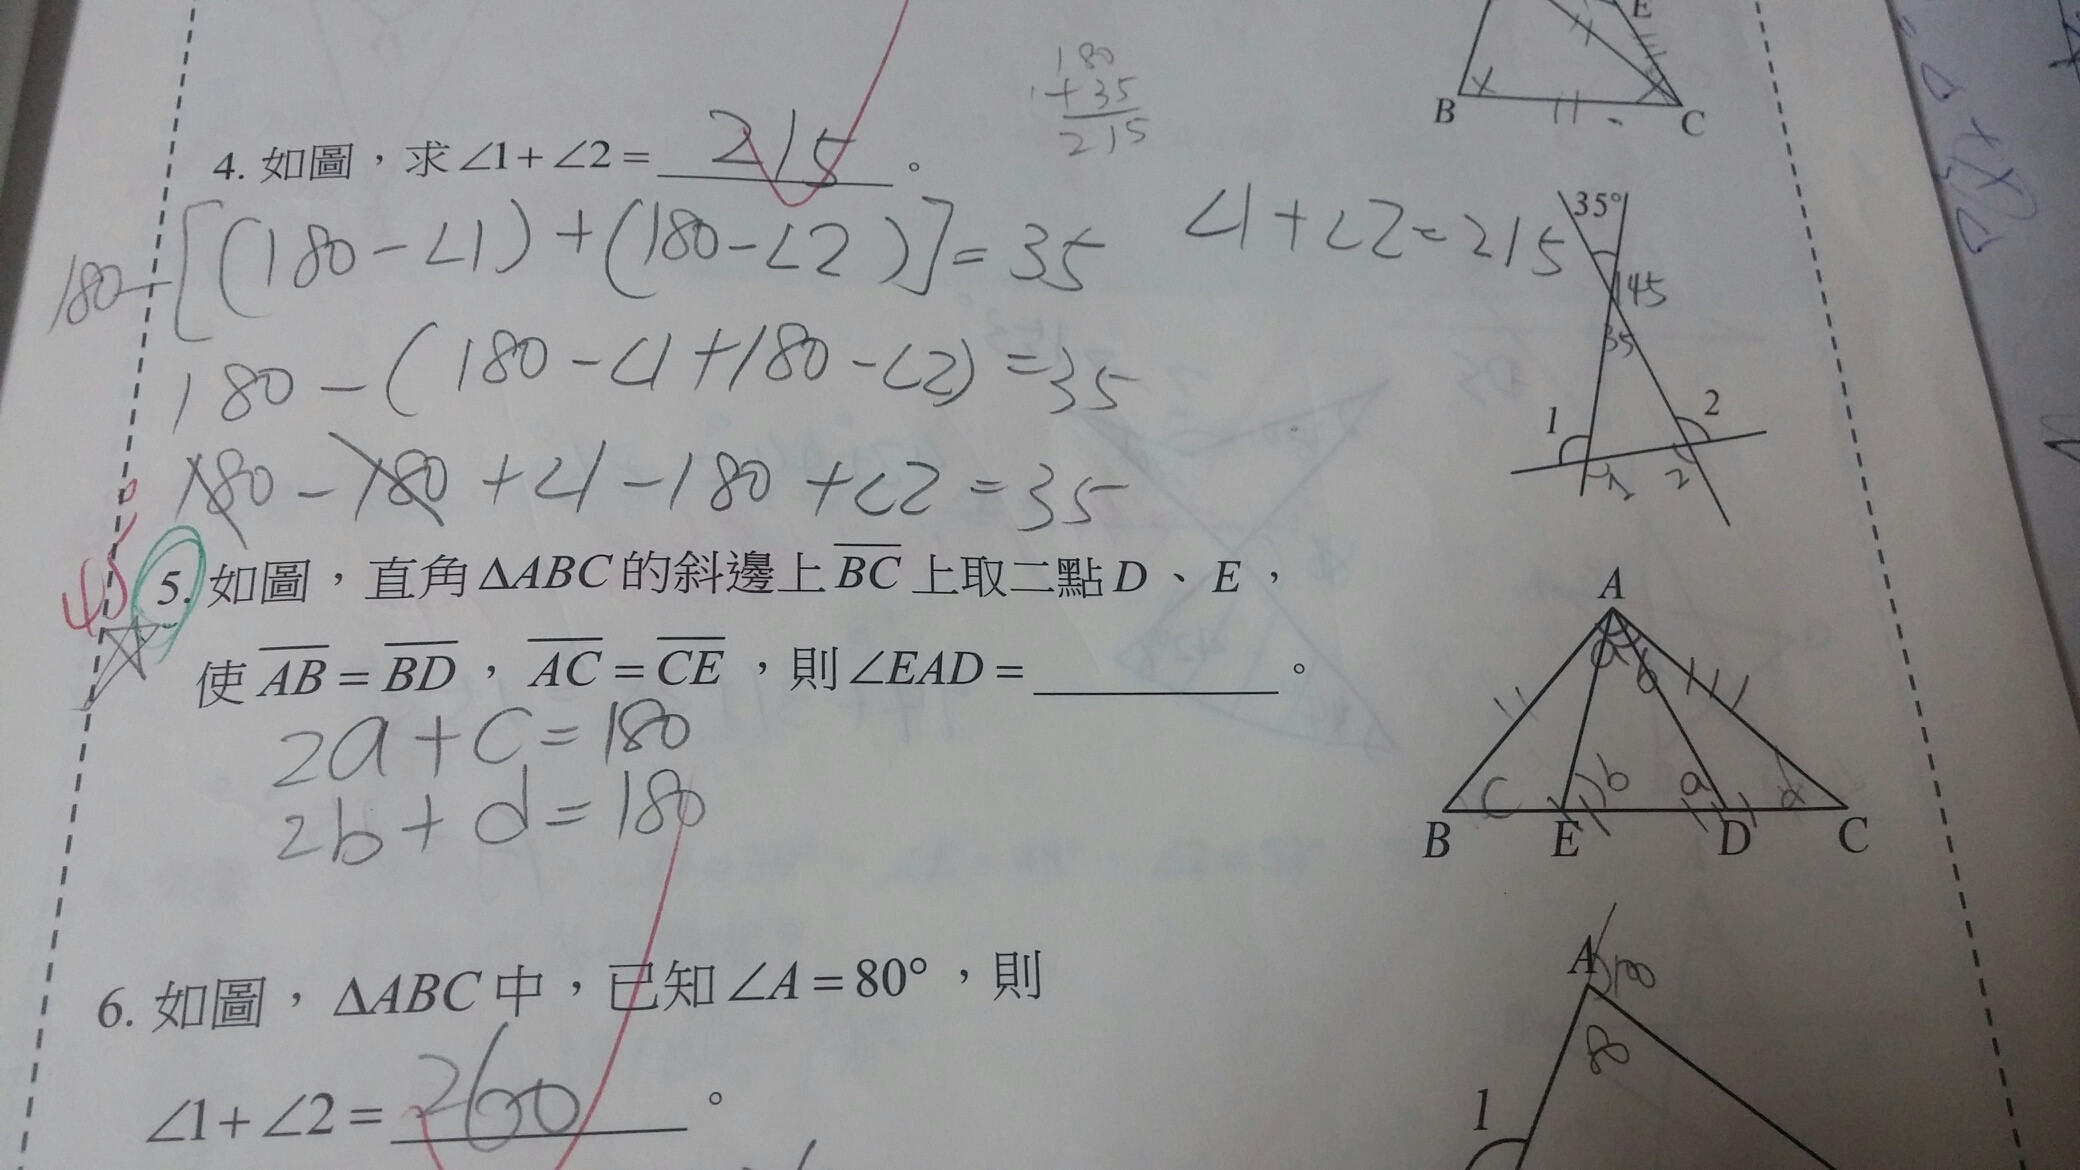 E
B
C
180
+35
215
4. 如圖，求∠1+∠2= 215 。
180-[(180-∠1)+(180-∠2)]=35
∠1+∠2=215
180-(180-∠1+180-∠2)=35
180-180+∠1-180+∠2=35
35°
145
35
1
2
2
45°
5. 如圖，直角ΔABC的斜邊上BC上取二點D、E，
使AB=BD，AC=CE，則∠EAD= 。
2a+c=180
2b+d=180
A
a b
c b a d
B E D C
6. 如圖，ΔABC中，已知∠A=80°，則
∠1+∠2= 260 。
A
100
80
1